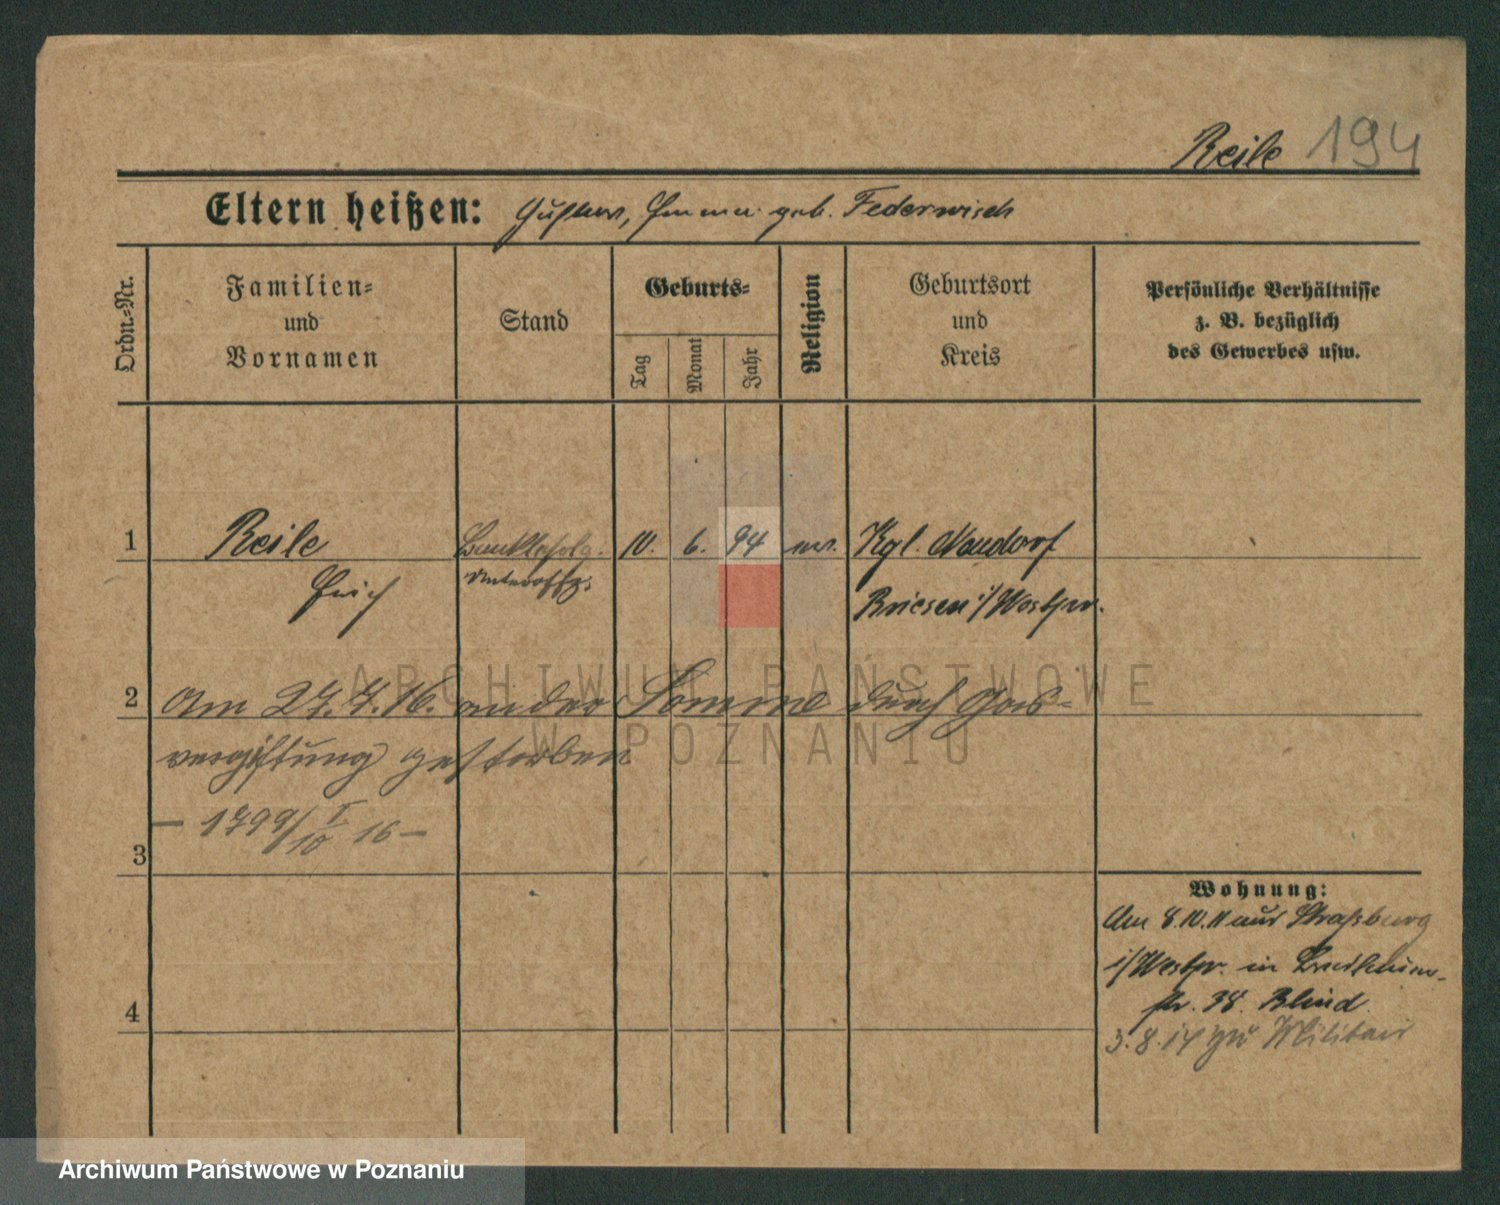 Reile 194
Eltern heißen: Gustav, Emma geb. Federwisch
Ordn.=Nr.
Familien=
und
Vornamen
Stand
Geburts=
Tag
Monat
Jahr
Religion
Geburtsort
und
Kreis
Persönliche Verhältnisse
z. B. bezüglich
des Gewerbes usw.
1 Reile 10. 6. 94 ev. Kgl. Neudorf
Erich Unteroffz. Briesen i/Westpr.
ARCHIWUM PAŃSTWOWE
W POZNANIU
2 Am 27.7.16. an der Somme durch Gas-
vergiftung gestorben
– 1799/I/10 16 –
3
Wohnung:
Am 8.10.11 aus Straßburg
i/Westpr. in
str. 38. Blind.
4
3.8.14 zu Militair
Archiwum Państwowe w Poznaniu